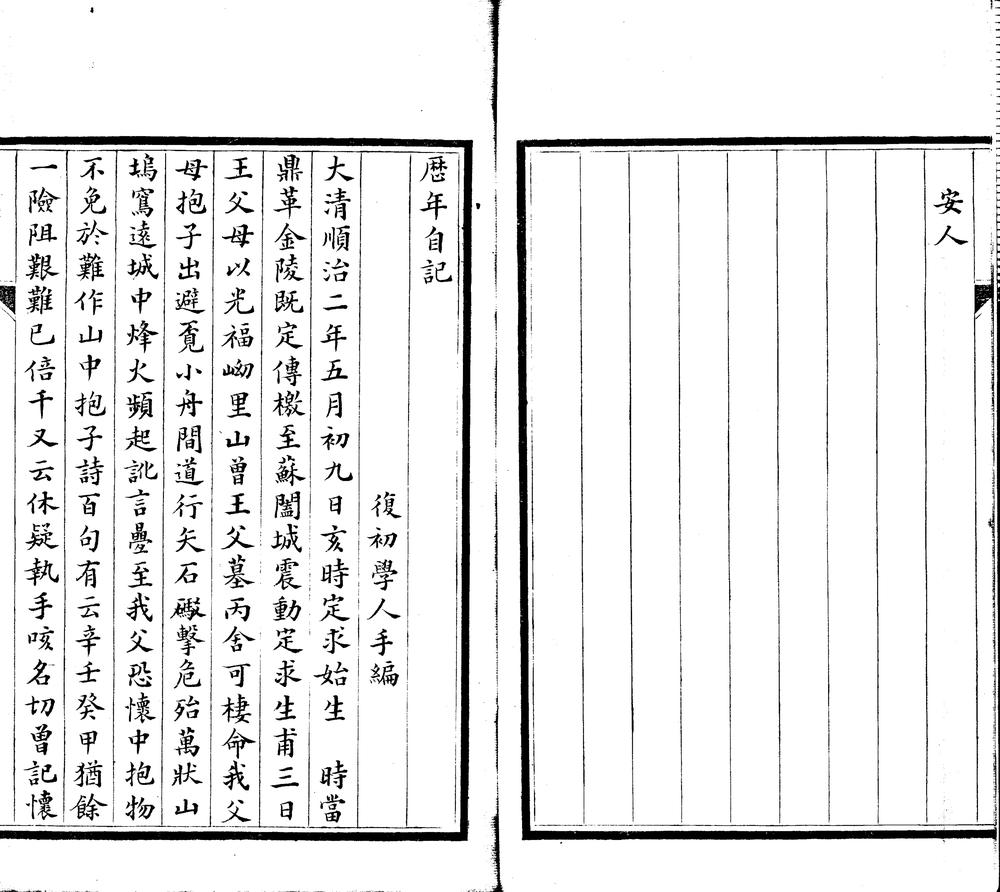 安人
歴年自記
復初學人手編
大清順治二年五月初九日亥時定求始生　時當
鼎革金陵既定傳檄至蘇闔城震動定求生甫三日
王父母以光福㘭里山曾王父墓丙舍可棲命我父
母抱子出避覔小舟間道行矢石礮擊危殆萬狀山
塢窵遠城中烽火頻起訛言疊至我父恐懷中抱物
不免於難作山中抱子詩百句有云辛壬癸甲猶餘
一險阻艱難已倍千又云休疑執手咳名切曾記懷